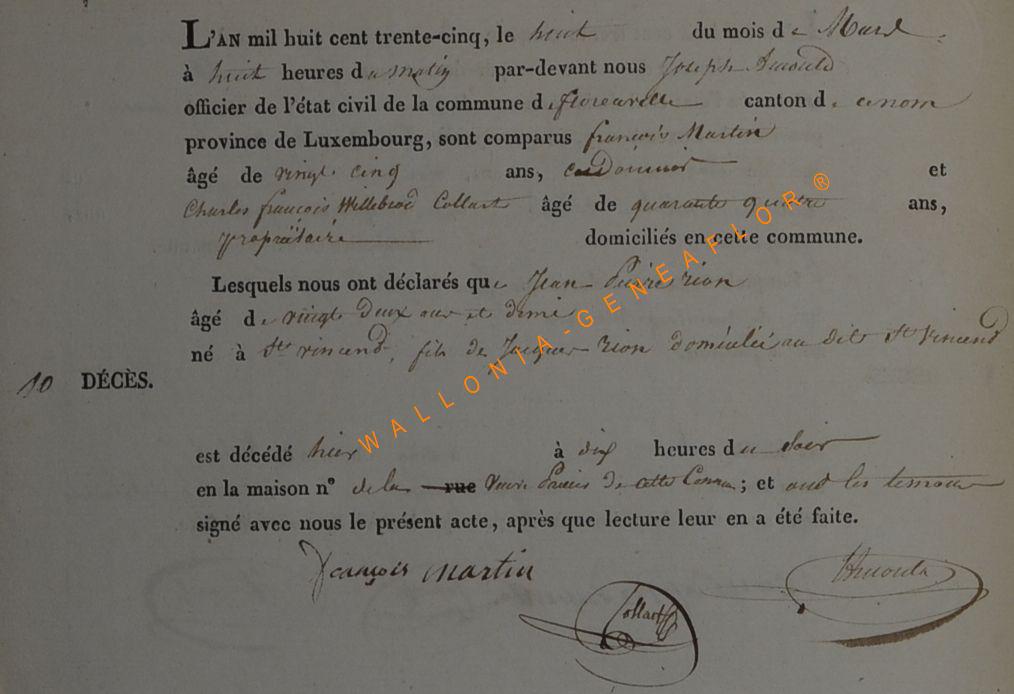 L'AN mil huit cent trente-cinq, le huit du mois de Mars
à huit heures du matin par-devant nous Joseph Arnould
officier de l'état civil de la commune de florenville canton de ce nom
province de Luxembourg, sont comparus françois Martin
âgé de vingt cinq ans, cordonnier et
Charles françois Willebrod Collart âgé de quarante quatre ans,
propriétaire domiciliés en cette commune.
Lesquels nous ont déclarés que Jean Pierre rion
âgé de vingt deux ans et demi
né à St vincend, fils de Jacques rion domicilié au dit St Vincend
10 DÉCÈS.
est décédé hier à dix heures du soir
en la maison n° de la rue de cette ; et ont les temoins
signé avec nous le présent acte, après que lecture leur en a été faite.
françois martin
Collart
Arnould
WALLONIA-GENEAFLOR ®